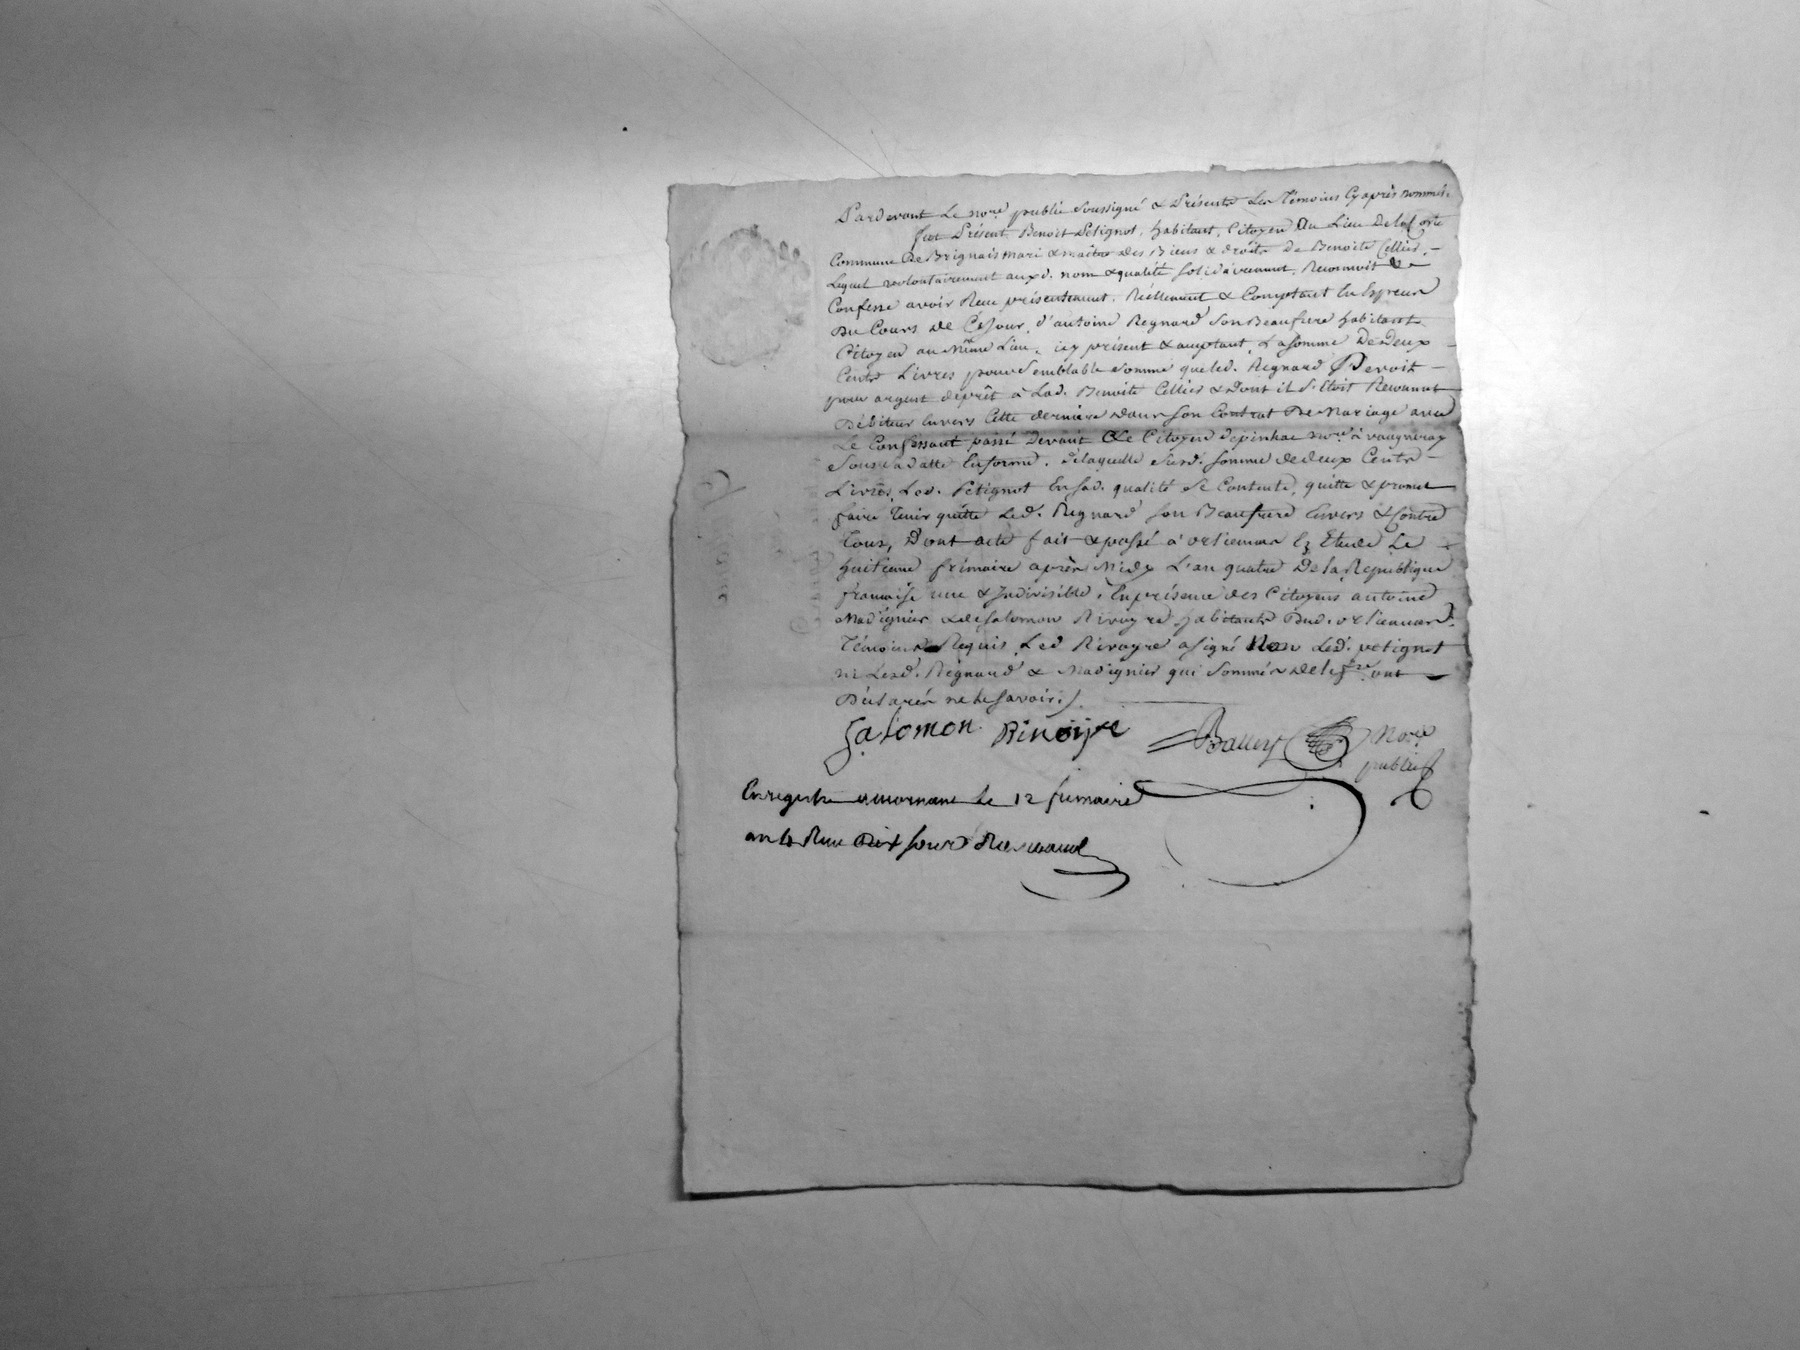 Pardevant Le no.re public Soussigné & Présents Les Témoins Cyaprès nommés.
fut Présent Benoit Petignot, habitant, Citoyen Du Lieu Delaf orte
Commune De Brignais mari & maître des Biens & droits de Benoite Cellier. –
Lequel volontairement auxd. nom & qualité solidairement, Reconnoit &
Confesse avoir Reçu présentement. Réellement & Comptant En Espèces
Du Cours de Cejour, d'antoine Regnard Son Beaufrere habitant
Citoyen au Même Lieu, icy présent & acceptant, La somme De Deux –
Cents Livres pour Semblable Somme queled. Regnard Devoit –
pour argent deprêt à Lad. Benoite Cellier & Dont il S'Etoit Reconnut
Débiteur Envers Cette derniere dans Son Contrat De Mariage avec
Le Confessant passé Devant Le Citoyen depinhac no.re à vaugneray
Sous sa datte En forme. Delaquelle Susd. Somme dedeux Cents –
Livres, Led. Petignot En sad. qualité Se Contente, quitte & promet
faire Tenir quitte Led. Regnard Son Beaufrere Envers & Contre
Tous, Dont acte fait & passé à orlienas Ez Etude Le
huitieme frimaire après Midy L'an quatre De la Republique
francaise une & Indivisible, En présence des Citoyens antoine
Madignier & de Salomon Rivoyre habitants Dud. orlienas.
Témoins Requis, Led Rivoyre a signé Non Led. petignot
ni Lesd. Régnard & Madignier qui Sommés de signer ont
Déclarés ne le savoir./.
Salomon Rivoiyre Balley No.re
public
Enregistré a mornant le 12 frimaire
an 4 Reçu Dix sous